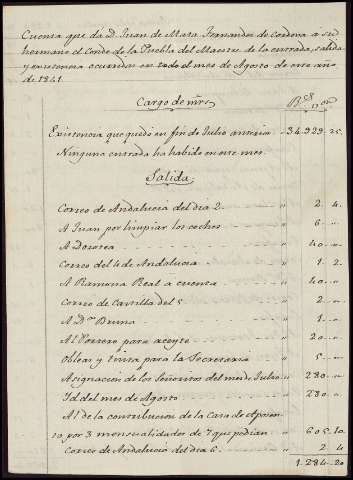 Cuenta que da D. Juan de Mata Fernandez de Cordova a su
hermano el Conde de la Puebla del Maestre de la entrada, salida
y existencia ocurridas en todo el mes de Agosto de este año
de 1841.
Cargo de mrs Rs von
Existencia que quedó en fin de Julio anterior 34.929..25.
Ninguna entrada ha habido en este mes.
Salida
Correo de Andalucia del dia 2 " 2.. 4.
A Juan por limpiar los coches " 6..
A Dorotea " 40..
Correo del 4 de Andalucia " 1.. 2.
A Ramona Real a cuenta " 40..
Correo de Castilla del 5 " 2..
A Dª Bruna " 1..
Al Portero para aceyte " 20..
Obleas y tinta para la Secretaria " 5..
Asignacion de los Señoritos del mes de Julio " 280..
Id. del mes de Agosto " 280..
Al de la contribucion de la Casa de Aposen
to por 3 mensualidades de 7 que pedian " 605..10.
Correo de Andalucia del dia 6 " 2.. 4
1.284..20